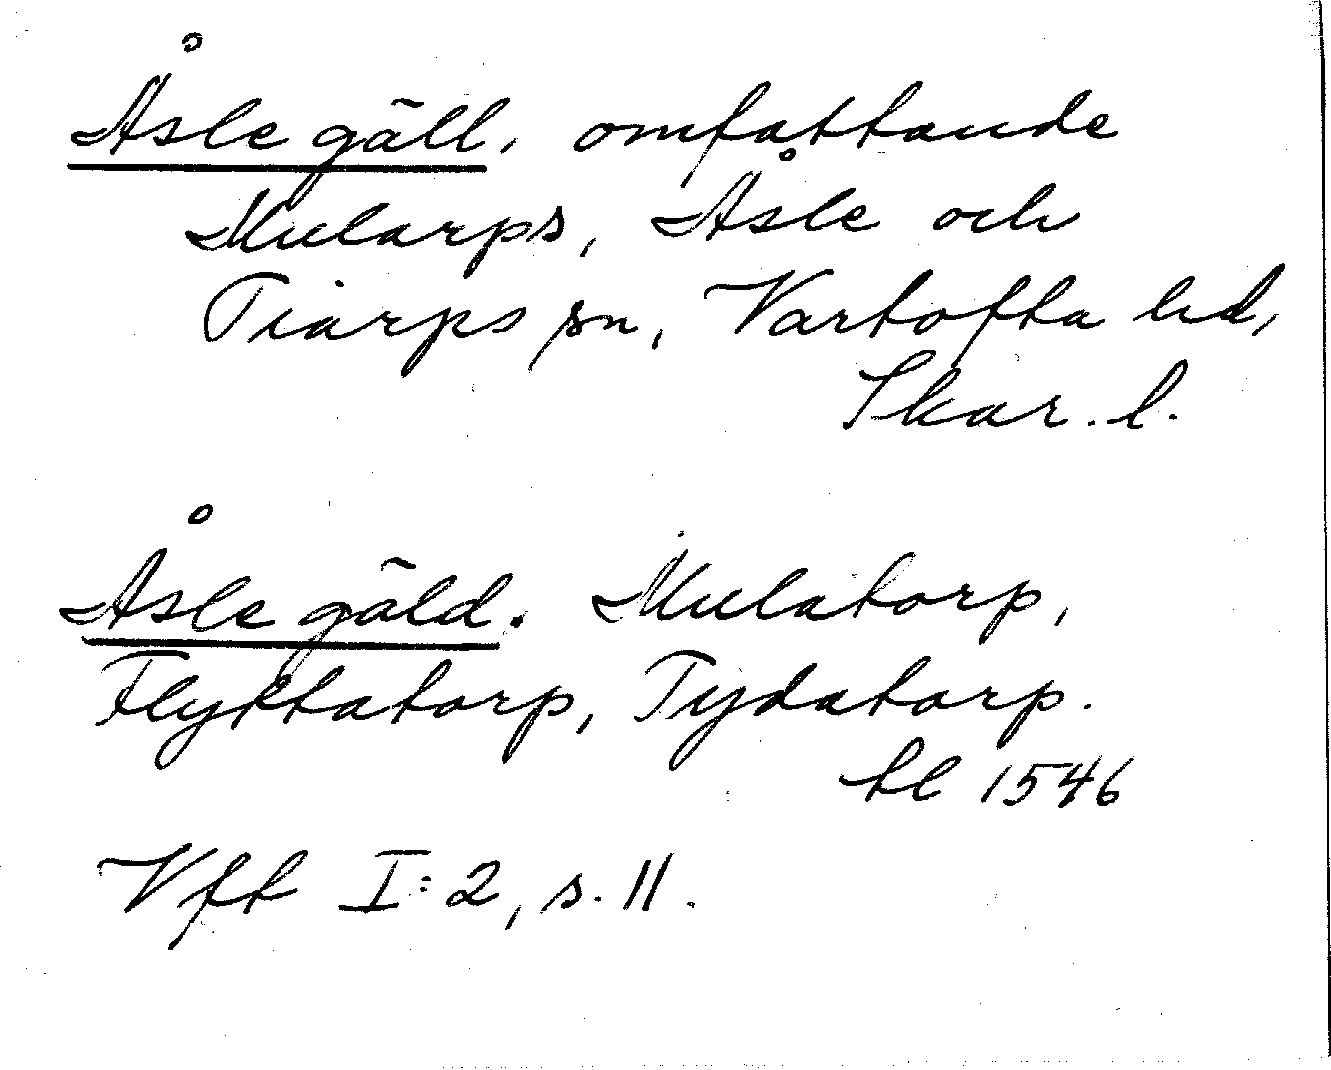 Åsle gäll, omfattande
Mularps, Åsle och
Tiarps sn, Vartofta hd,
Skar. l.
Åsle gäld. Mulatorp,
Flyktatorp, Tydatorp.
tl 1546
Vft I:2, s. 11.